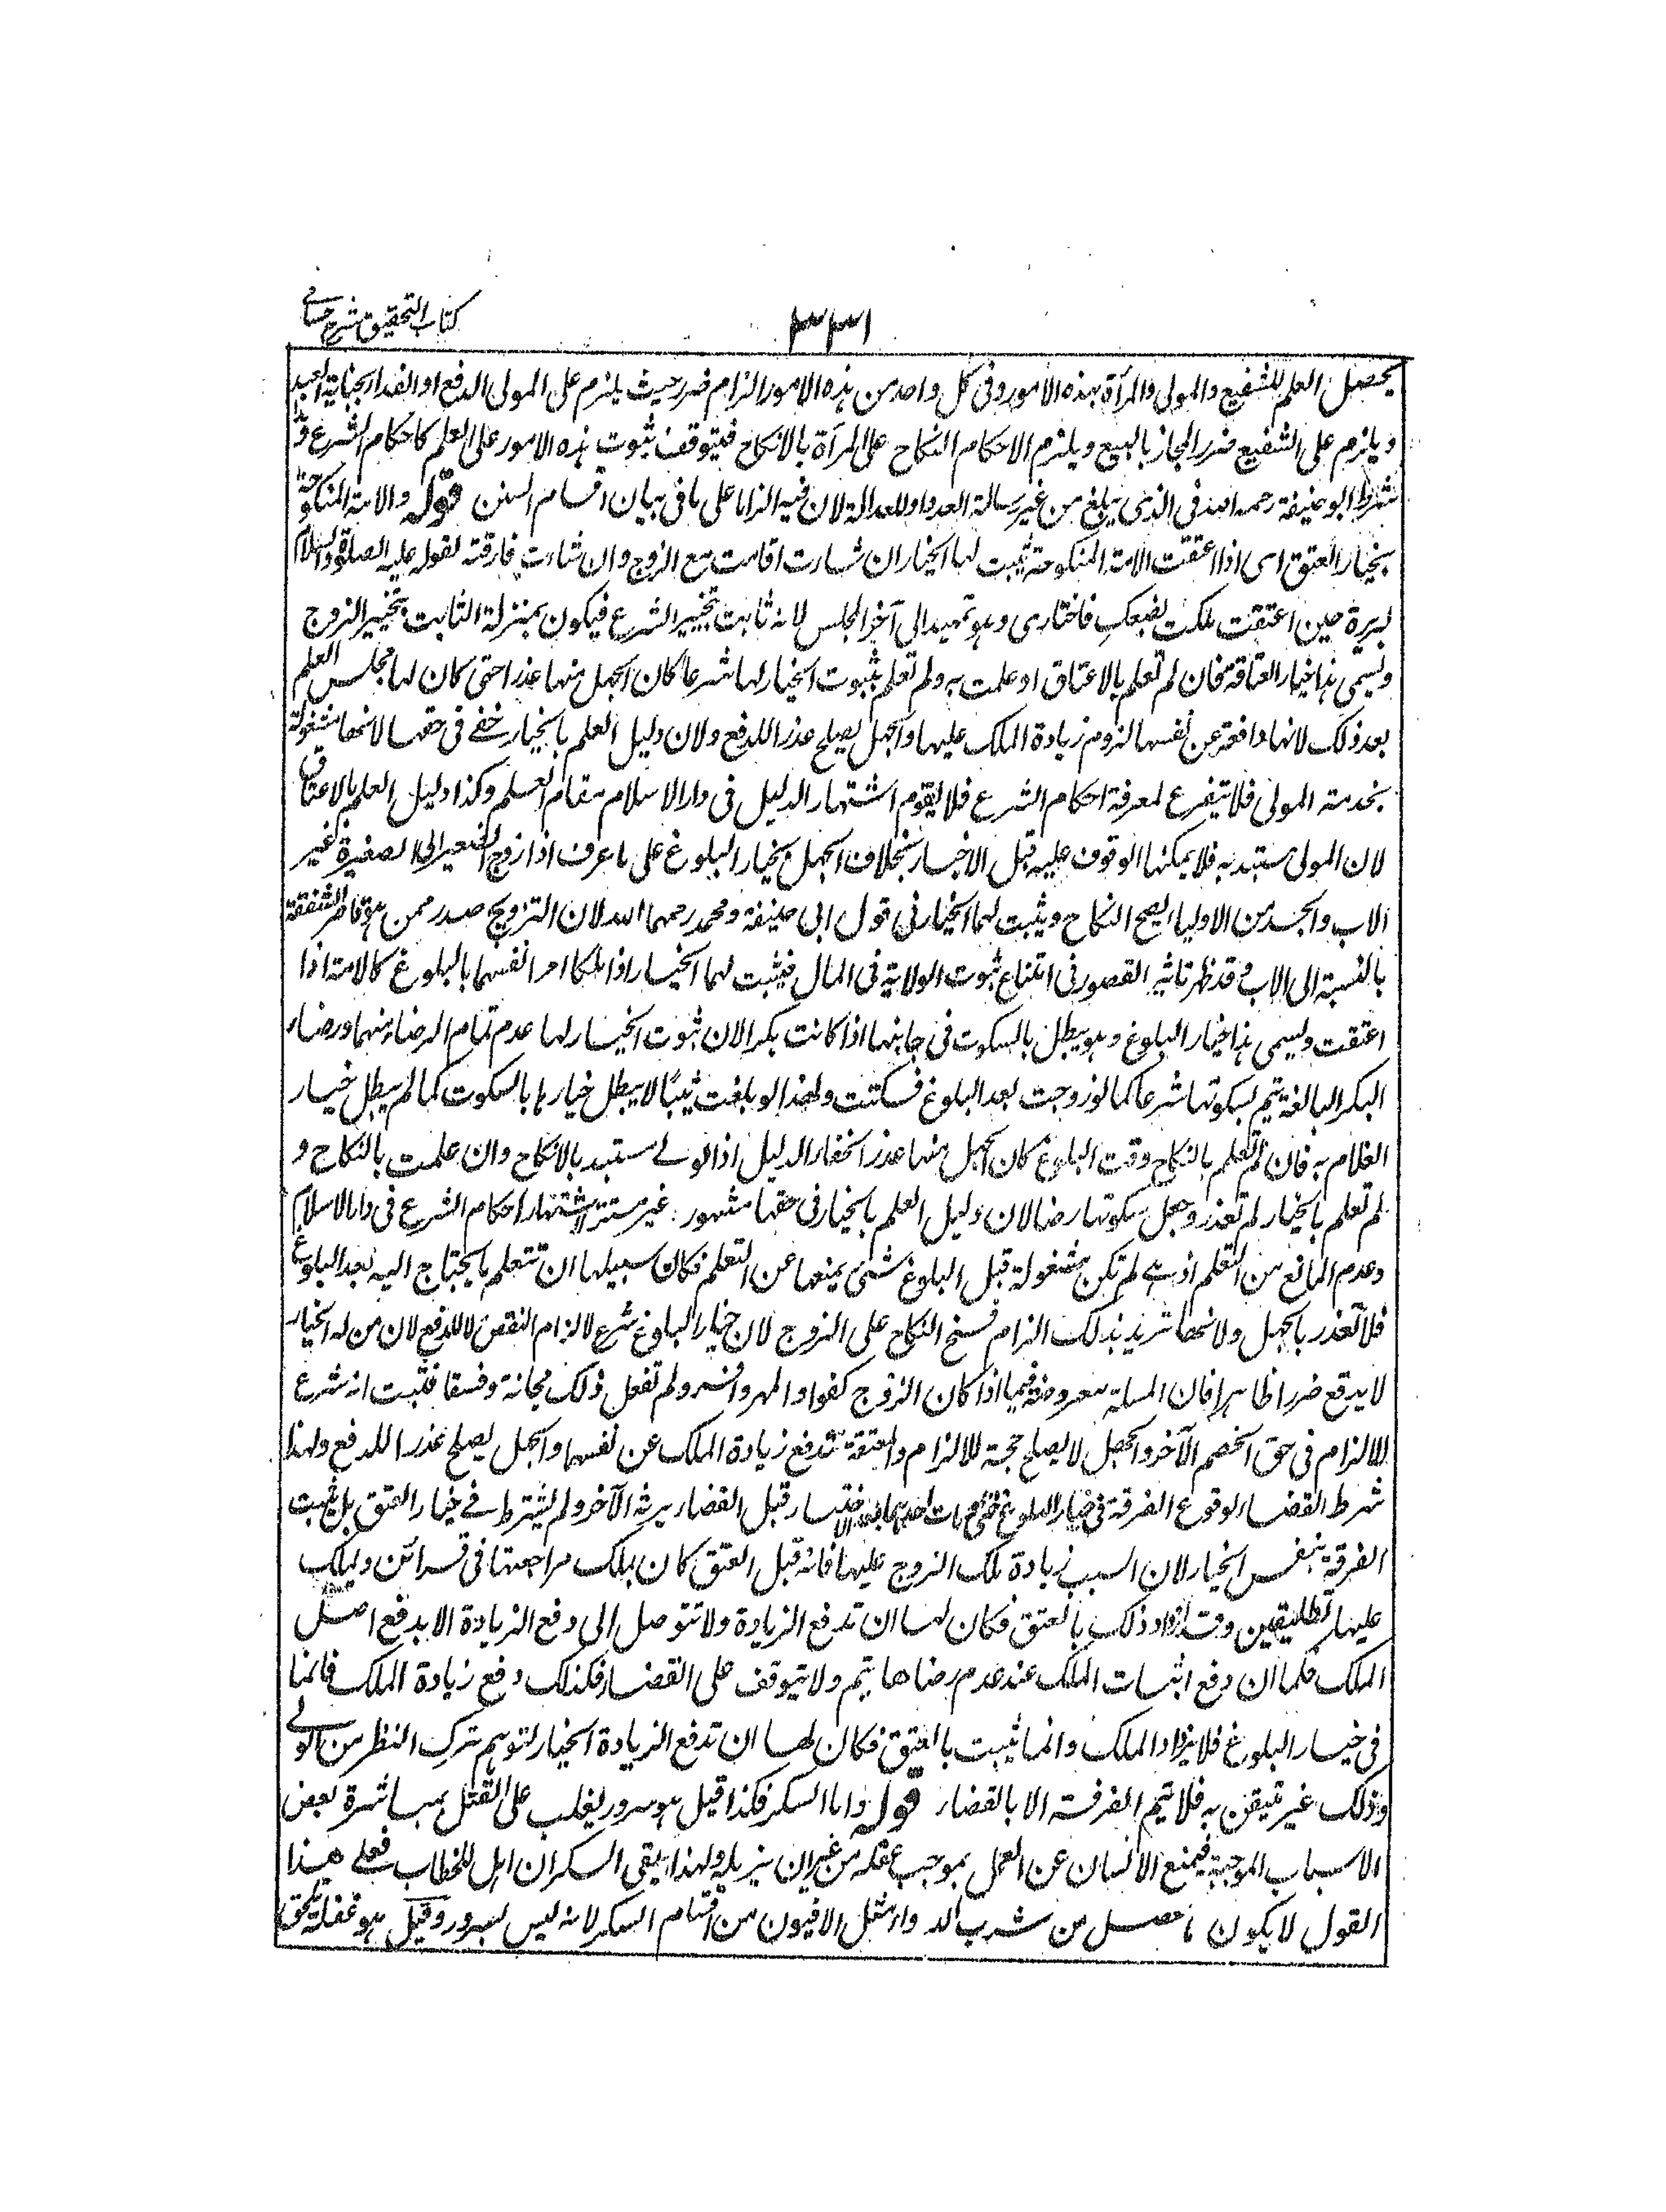 كتاب التحقيق شرح حسامى
٣٣١
يحصل العلم للشفيع والمولى والمرأة بهذه الامور وفى كل واحد من هذه الامور الزام ضرر حيث يلزم على المولى الدفع او الفداء بجناية العبد
ويلزم على الشفيع ضرر الجار بالبيع ويلزم الاحكام النكاح على المرأة بالانكاح فيتوقف ثبوت هذه الامور على العلم كاحكام الشرع ولذا
شرط ابو حنيفة رحمه الله فى الذى يبلغ من غير رسالة العدد او العدالة لان فيه الزاما على ما فى بيان اقسام السنن قوله والامة المنكوحة
بخيار العتق اى اذا اعتقت الامة المنكوحة يثبت لها الخيار ان شاءت اقامت مع الزوج وان شاءت فارقته لقوله عليه الصلوة والسلام
لبريرة حين اعتقت ملكت بضعك فاختارى وهو تميد الى آخر المجلس لانه ثابت بتخيير الشرع فيكون بمنزلة الثابت بتخيير الزوج
ويسمى هذا خيار العتاقة فان لم تعلم بالاعتاق او علمت به ولم تعلم بثبوت الخيار لها شرعا كان الجهل منها عذرا حتى كان لها مجلس العلم
بعد ذلك لانها دافعة عن نفسها لزوم زيادة الملك عليها والجهل يصلح عذرا للدفع ولان دليل العلم بالخيار خفى فى حقها لانها مشغولة
بخدمة المولى فلا تتفرغ لمعرفة احكام الشرع فلا يقوم اشتهار الدليل فى دار الاسلام مقام العلم وكذا دليل العلم بالاعتاق
لان المولى مستبد به فلا يمكنها الوقوف عليه قبل الاخبار بخلاف الجهل بخيار البلوغ على ما عرف اذا زوج الصغير او الصغيرة غير
الاب والجد من الاولياء يصح النكاح ويثبت لهما الخيار فى قول ابى حنيفة ومحمد رحمهما الله لان التزويج صدر ممن هو قاصر الشفقة
بالنسبة الى الاب وقد ظهر تاثير القصور فى امتناع ثبوت الولاية فى المال فيثبت لهما الخيار اذا ملكا امر انفسهما بالبلوغ كالامة اذا
اعتقت ويسمى هذا خيار البلوغ وهو يبطل بالسكوت فى جانبها اذا كانت بكرا لان ثبوت الخيار لها عدم تمام الرضاء منهما ورضاء
البكر البالغة يتم بسكوتها شرعا كما لو زوجت بعد البلوغ فسكتت ولهذا لو بلغت ثيبا لا يبطل خيارها بالسكوت كما لم يبطل خيار
الغلام به فان لم تعلم بالنكاح وقت البلوغ كان الجهل منها عذرا لخفاء الدليل اذ الولى مستبد بالانكاح وان علمت بالنكاح و
لم تعلم بالخيار لم تعذر وجعل سكوتها رضا لان دليل العلم بالخيار فى حقها مشهور غير مستتر لاشتهار احكام الشرع فى دار الاسلام
وعدم المانع من التعلم اذ هى لم تكن مشغولة قبل البلوغ بشئ يمنعها عن التعلم فكان سبيلها ان تتعلم ما يحتاج اليه بعد البلوغ
فلا تعذر بالجهل ولانها تريد بذلك الزام فسخ النكاح على الزوج لان خيار البلوغ شرع لالزام النقض لا للدفع لان من له الخيار
لا يدفع ضررا ظاهرا فان المسئلة معروضة فيما اذا كان الزوج كفوا والمهر وافر ولم تفعل ذلك مجانة وفسقا فثبت انه شرع
للالزام فى حق الخصم الآخر والجهل لا يصلح حجة للالزام والمعتقة تدفع زيادة الملك عن نفسها والجهل يصلح عذرا للدفع ولهذا
شرط القضاء لوقوع الفرقة فى خيار البلوغ حتى لو مات احدهما بعد الاختيار قبل القضاء يرثه الآخر ولم يشترط فى خيار العتق بل يثبت
الفرقة بنفس الخيار لان السبب زيادة ملك الزوج عليها فانه قبل العتق كان يملك مراجعتها فى قرائن ويملك
عليها تطليقتين وقد ازداد ذلك بالعتق فكان لها ان تدفع الزيادة ولا تتوصل الى دفع الزيادة الا بدفع اصل
الملك فكما ان دفع اثبات الملك عند عدم رضاها يتم ولا يتوقف على القضاء فكذلك دفع زيادة الملك فاما
فى خيار البلوغ فلا يزداد الملك وانما يثبت بالعتق فكان لها ان تدفع الزيادة الخيار لتوهم ترك النظر من الولى
وذلك غير متيقن به فلا يتم الفرقة الا بالقضاء قوله واما السكر فكذا قيل هو سرور يغلب على العقل بمباشرة بعض
الاسباب الموجبة فيمنع الانسان عن العمل بموجب عقله من غير ان يزيله ولهذا يبقى السكران اهل للخطاب فعلى هذا
القول لا يكون ما حصل من شرب الدواء مثل الافيون من اقسام السكر لانه ليس بسرور وقيل هو غفلة تلحق